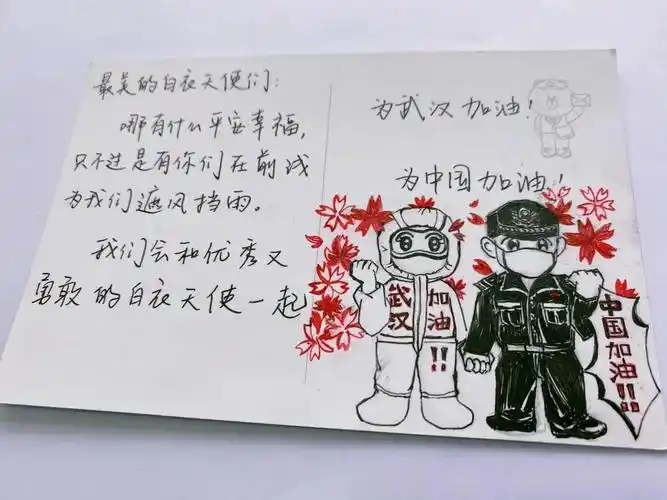 最美的白衣天使们：
哪有什么平安幸福，
只不过是有你们在前线
为我们遮风挡雨。
我们会和优秀又
勇敢的白衣天使一起
为武汉加油！
为中国加油！
武汉加油!!
中国加油!!